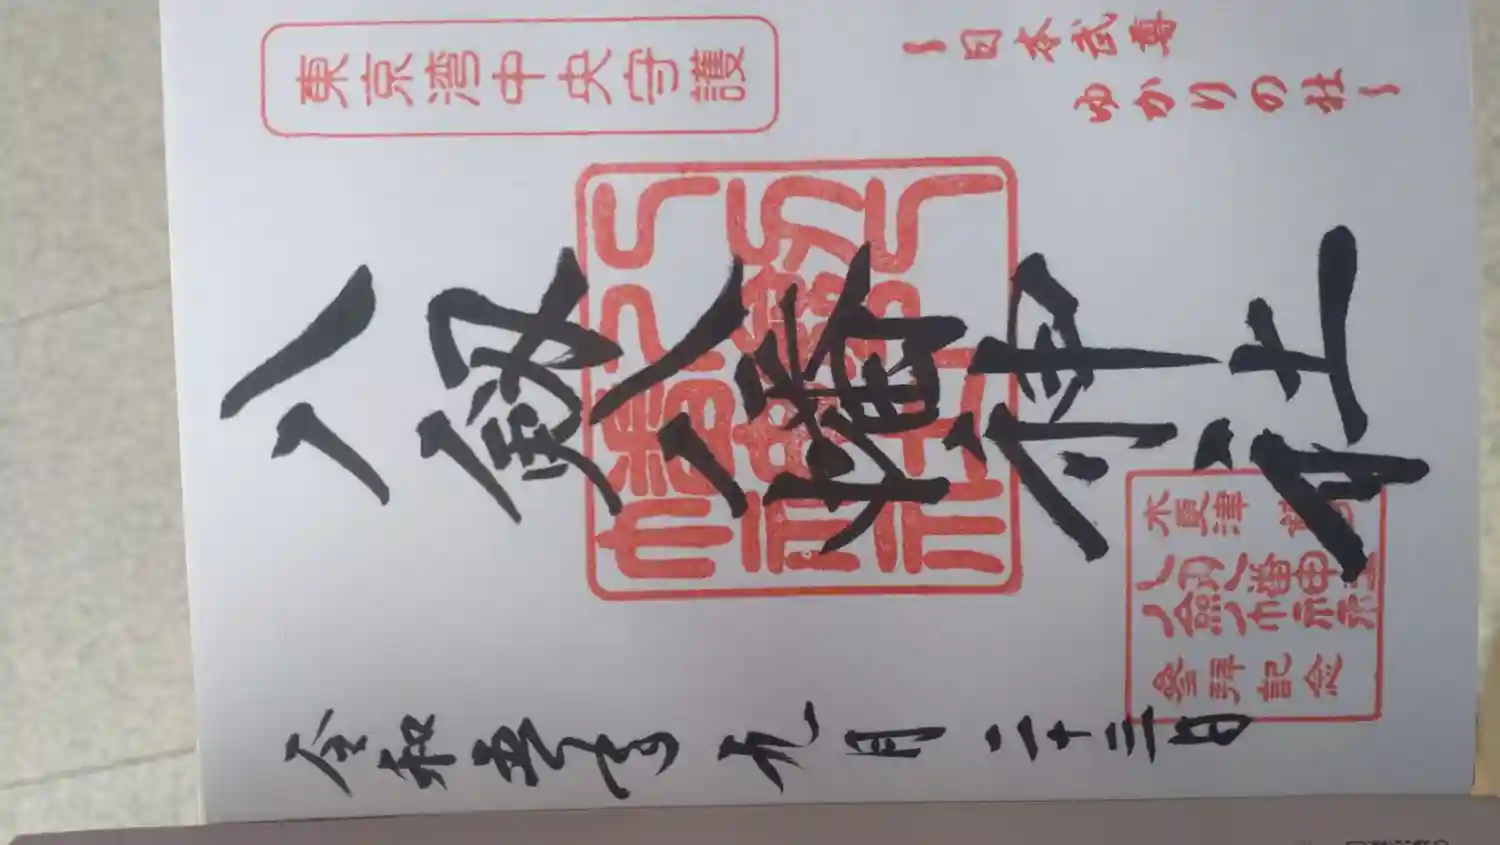 東京湾中央守護
~日本武尊
ゆかりの社~
八剱八幡神社
木更津
八剱八幡神社
参拝記念
令和五年九月二十三日